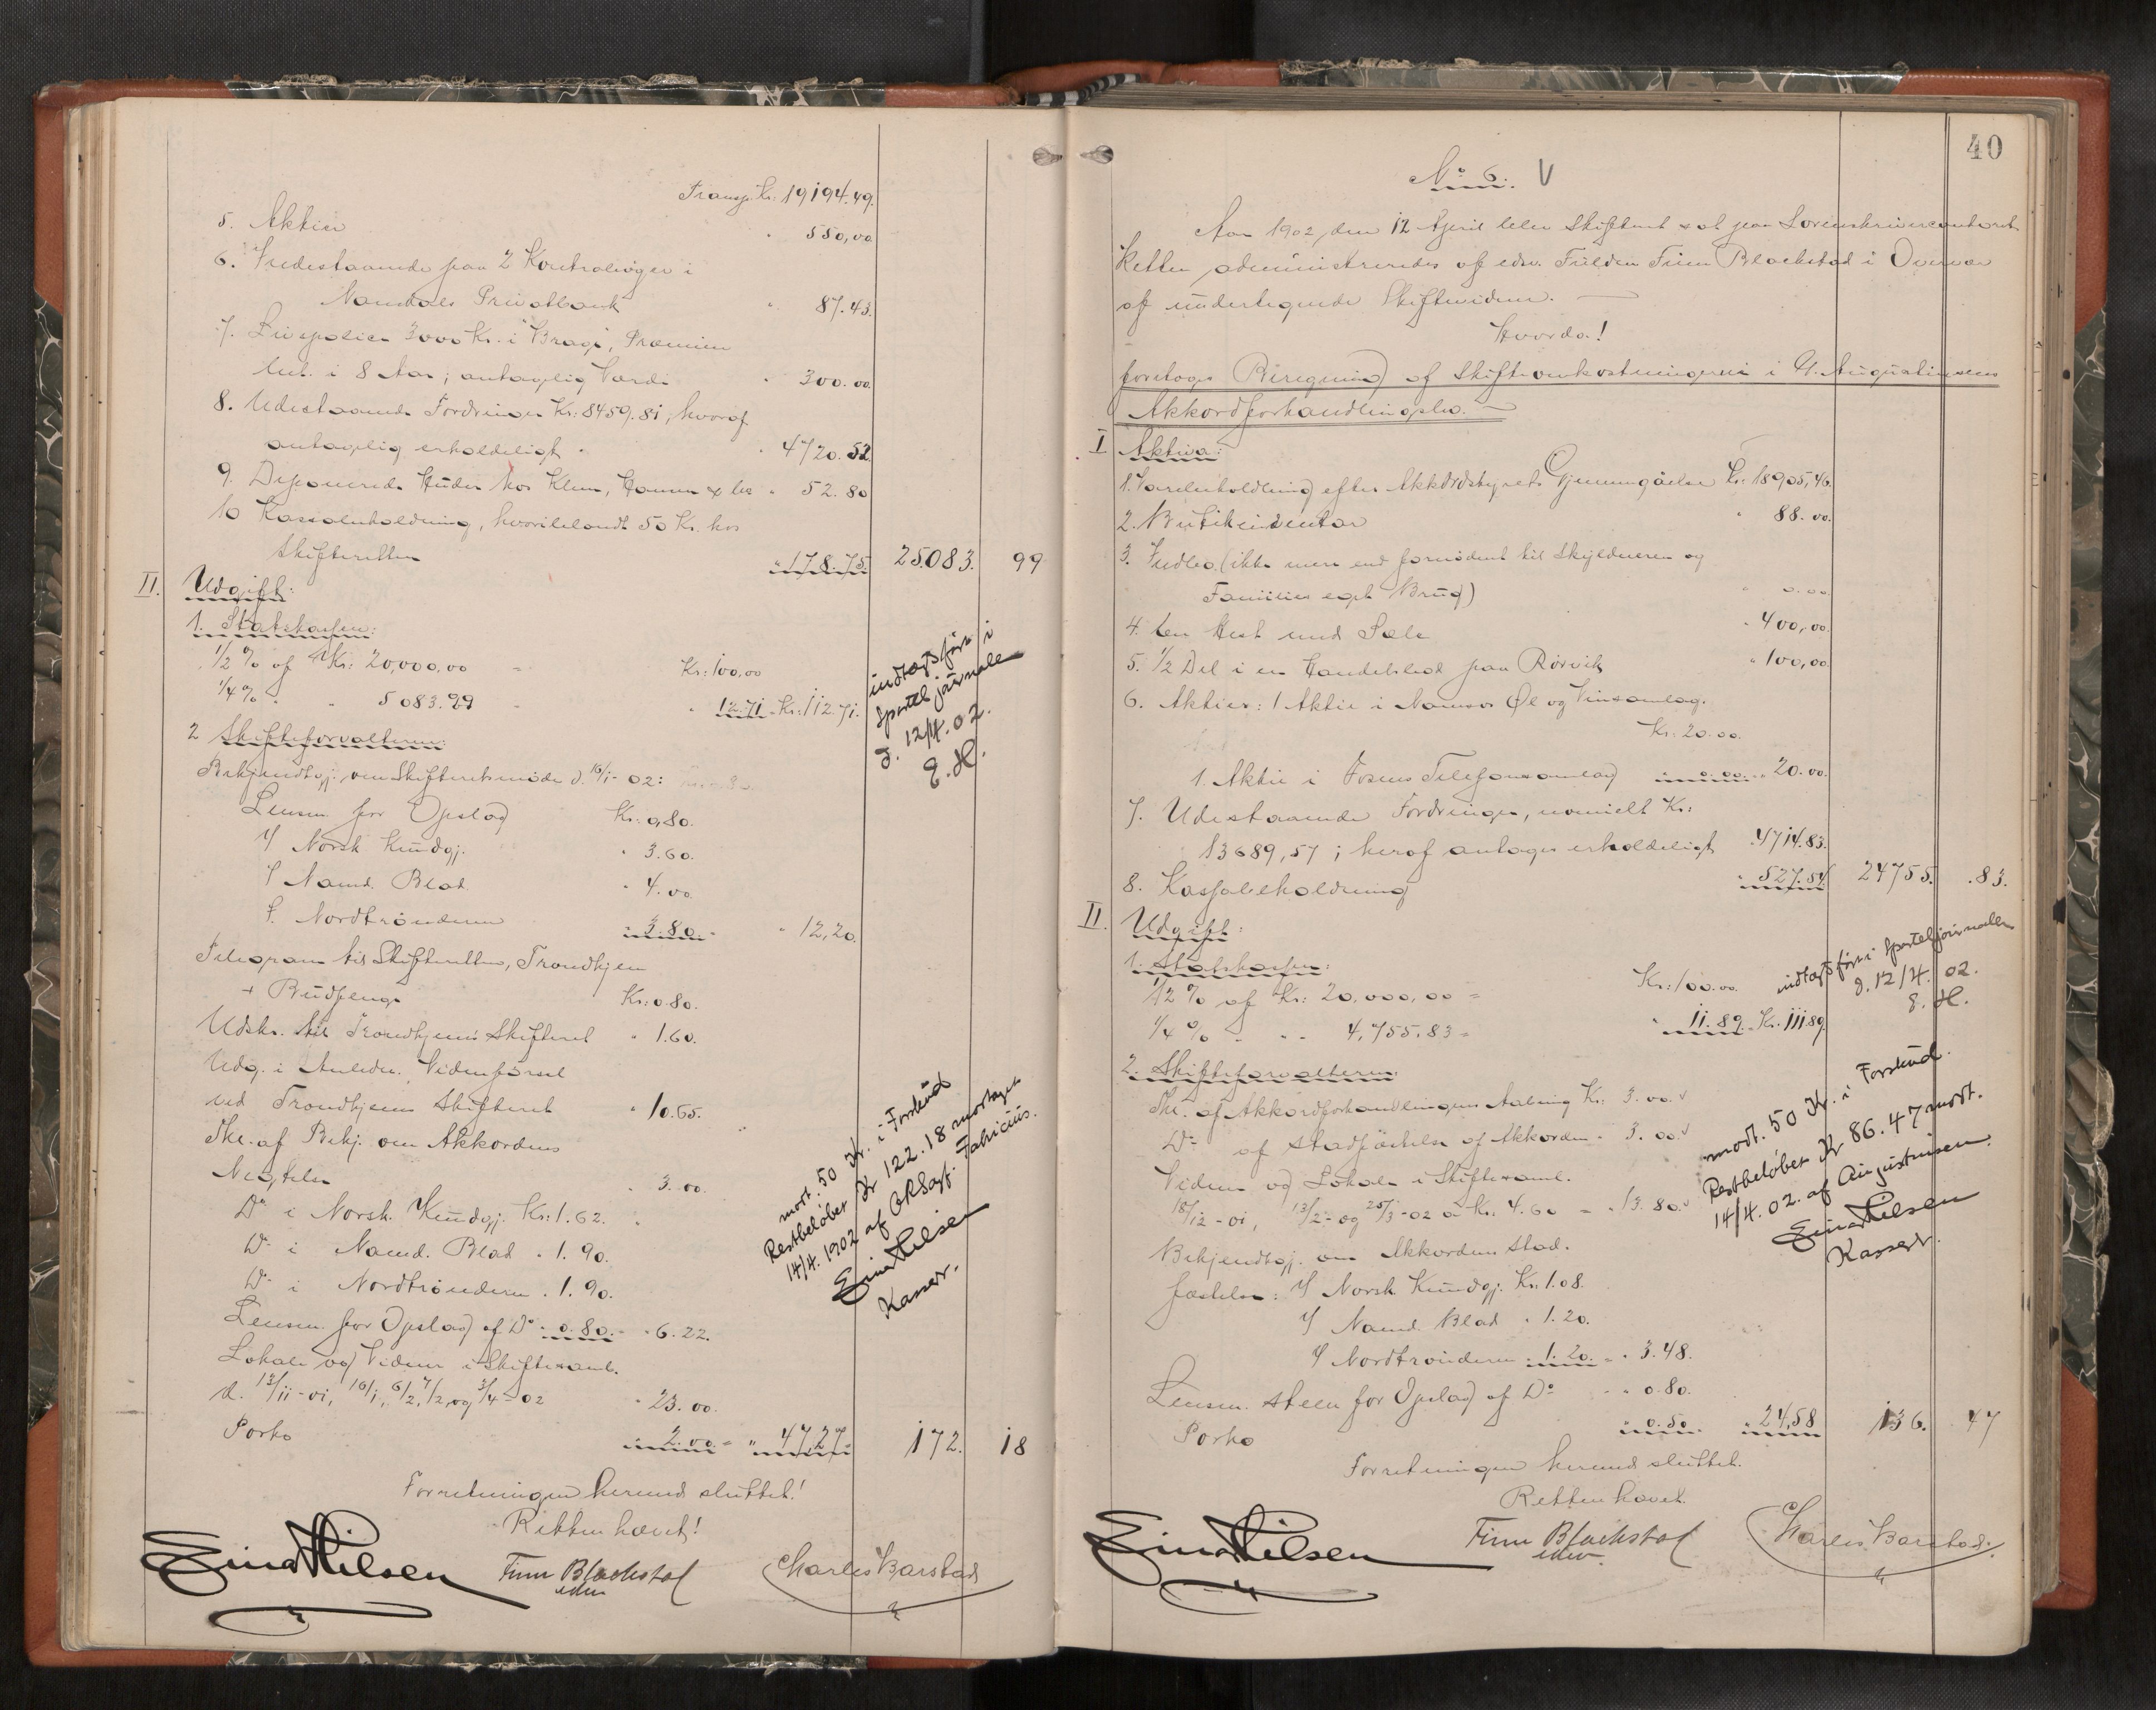 Transp. Kr. 19194.49.
5. Aktier " 550,00
6. Indestaaende paa 2 Kontrabøger i
Namdals Privatbank " 87.43.
7. Livspolice 3000 Kr. i "Brage", Præmien
bet. i 8 Aar; antagelig Værdi " 300.00.
8. Udestaaende Fordringer Kr: 8459.81, hvoraf
antagelig erholdeligt " 4720.52.
9. Deponerede Huder hos Klem, Hansen & Co " 52.80
10 Kassabeholdning, hvoriblandt 50 Kr. hos
Skifteretten " 178.75. 25083. 99
II. Udgift:
1. Statskassen:
1/2 % af Kr: 20,000,00 = Kr: 100,00
1/4 % - - 5083.99 = " 12.71 = Kr: 112.71.
indtægtsført i
Sporteljournale
d. 12/4.02.
E.H.
2 Skifteforvalteren:
Bekjendtgj. om Skifteretsmøde d. 16/1-02:
Lensm. for Opslag Kr: 0,80.
I Norsk Kundgj. " 3.60.
I Namd. Blad. " 4.00
I. Nordtrønderen " 3.80. = " 12,20.
Telegram til Skifteretten, Trondhjem
+ Budpenge Kr: 0.80.
Udskr. til Trondhjems Skifteret " 1.60.
Udg. i Anledn. Vidneførsel
ved Trondhjems Skifteret " 10.65.
Skr. af Bekj. om Akkordens
Negtelse " 3.00.
Do i Norsk Kundgj. Kr: 1.62.
Do i Namd. Blad " 1.90.
Do i Nordtrønderen " 1.90.
Lensm. for Opslag af Do " 0.80. = " 6.22.
Lokale og Vidner i Skiftesaml.
d. 13/11-01, 16/1, 6/2, 7/2, og 3/4-02 " 23.00.
Porto " 2.00. = " 47,27 = 172. 18
modt. 50 Kr. i Forskud
Restbeløbet Kr 122.18 modtaget
14/4.1902 af ORSagf. Fabricius.
Einar Nilsen
Kasser.
Forretningen hermed sluttet!
Retten hævet!
Einar Nilsen Finn Blackstad Charles Barstad
edsv.
40
No 6. V
Aar 1902, den 12 April blev Skifteret sat paa Sorenskrivercontoret
Retten administreredes af edsv. Fuldm. Finn Blackstad i Overvær
af undertegnede Skiftevidner.
Hvorda!
foretoges Beregning af Skifteomkostningerne i A. Augustinsens
Akkordforhandlingsbo.
I Aktiva:
1. Varebeholdning efter Akkordstyrets Gjennemgåelse Kr: 18905,46.
2. Butikinventar " 88.00.
3. Indbo. (ikke mere end fornødent til Skyldneren og
Families eget Brug) " 0.00
4. En Hest med Sæle " 400,00.
5. 1/2 Del i en Handelsbod paa Rørvik " 100,00.
6. Aktier: 1 Aktie i Namsos Øl og Vinsamlag.
Kr: 20.00.
1. Aktie i Fosens Telefonsamlag " 0.00. " 20.00.
7. Udestaaende Fordringer, nominelt Kr:
13689,57; heraf antages erholdeligt " 4714.83.
8. Kassabeholdning " 527.54 24755. .83.
II. Udgift:
1. Statskassen:
1/2 % af Kr: 20,000,00 = Kr: 100.00.
1/4 % - - - 4,755.83 = " 11.89. = Kr. 111.89.
indtægtsført i Sporteljournalen
d. 12/4. 02.
E.H.
2. Skifteforvalteren:
Skr. af Akkordforhandlingens Aabning Kr: 3.00. v
Do af Stadfæstelse af Akkorden " 3.00. v
Vidner og Lokale i Skiftesaml.
18/12-01, 13/2- og 25/3-02 a Kr: 4.60 = " 13.80. v
Bekjendtgj. om Akkordens Stad.
fæstelse: I Norsk Kundgj. Kr: 1.08.
I Namd. Blad " 1.20.
I Nordtrønderen " 1.20. = " 3.48.
Lensm. Steen for Opslag af Do " 0.80.
Porto " 0.50. " 24,58 136. 47
modt. 50 Kr. i Forskud.
Restbeløbet Kr 86.47 modt.
14/4.02. af Augustinsen.
Einar Nilsen
Kasser.
Forretningen hermed sluttet.
Retten hævet.
Einar Nilsen Finn Blackstad Charles Barstad.
edsv.